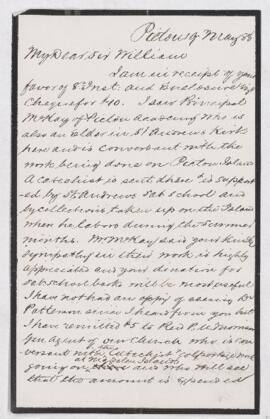 Pictou 19 May 88
My Dear Sir William
I am in receipt of your
favor of 8th Inst. and Enclosure viz
Cheque for $10. I saw Principal
McKay of Pictou Academy who is
also an elder in St Andrews Kirk
here and is conversant with the
work being done on Pictou Island
A Catechist is sent there & is support-
ed by St. Andrews Sab School and
by collections taken up on the Island
when he labors during the summer
months. Mr McKay said your kindly
sympathy in their work is highly
appreciated and your donation for
sab school books will be most useful
I have not had an oppy of seeing Dr
Patterson since I heard from you but
I have remitted $5 to Rev P. M Morrison
Gen Agent of our Church who is con-
versant with the Catechist Colportage work
at Magdalen Islands
going on and who will see
that the amount is expended